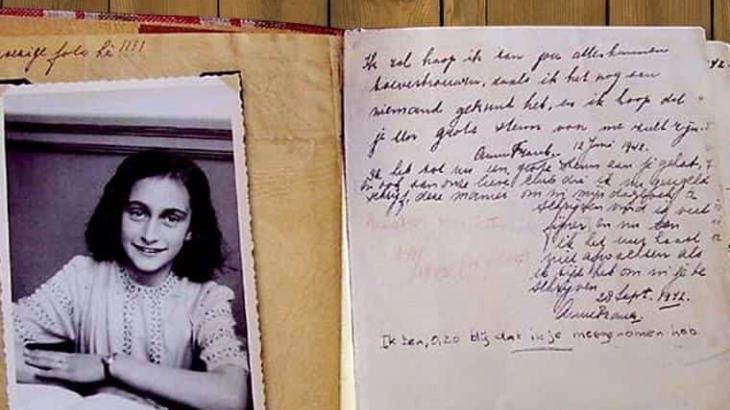 foto hè!!!!
Ik zal hoop ik aan jou alles kunnen
toevertrouwen, zoals ik het nog aan
niemand gekunt heb, en ik hoop dat
je een grote steun van me zult zijn.
Anne Frank. 12 Juni 1942.
Ik heb tot nu een grote steun aan je gehad,
en ook aan onze lieve club die ik nu geregeld
schrijf, deze manier om in mijn dagboek te
schrijven vind ik veel
fijner en nu kan
ik het uur haast
niet afwachten als
ik tijd heb om in je te
schrijven
28 Sept. 1942.
Anne Frank.
Ik ben, o, zo blij dat ik je meegenomen heb.
1942.